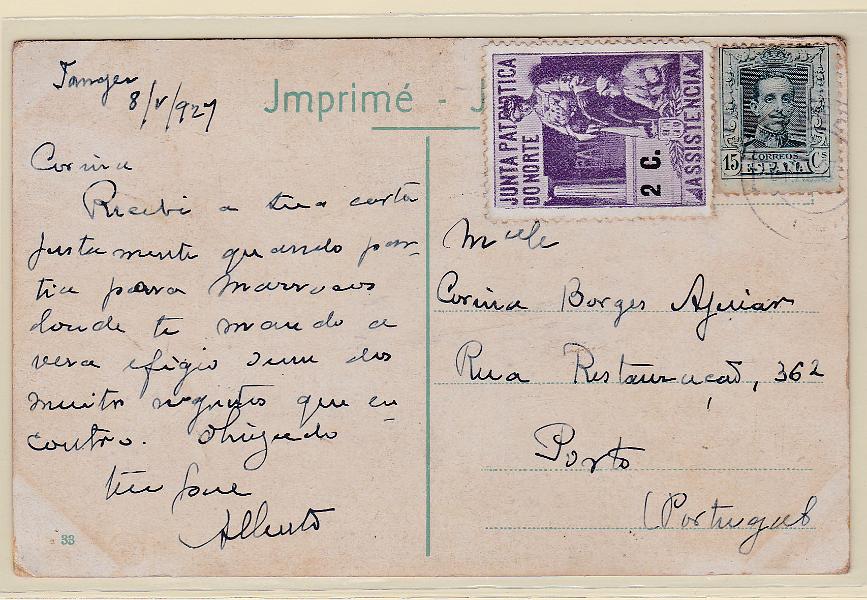 Tanger
8/V/927
Imprimé - J
JUNTA PATRIOTICA
DO NORTE
2 C.
ASSISTENCIA
15 CORREOS Cs
ESPAÑA
Corina
Recebi a tua carta
justamente quando par-
tia para Marrocos
donde te mando a
vera efigie dum dos
muitos negritos que en-
contro. Obrigado
teu
Alberto
33
Mlle
Corina Borges Aguiar
Rua Restauração, 362
Porto
(Portugal